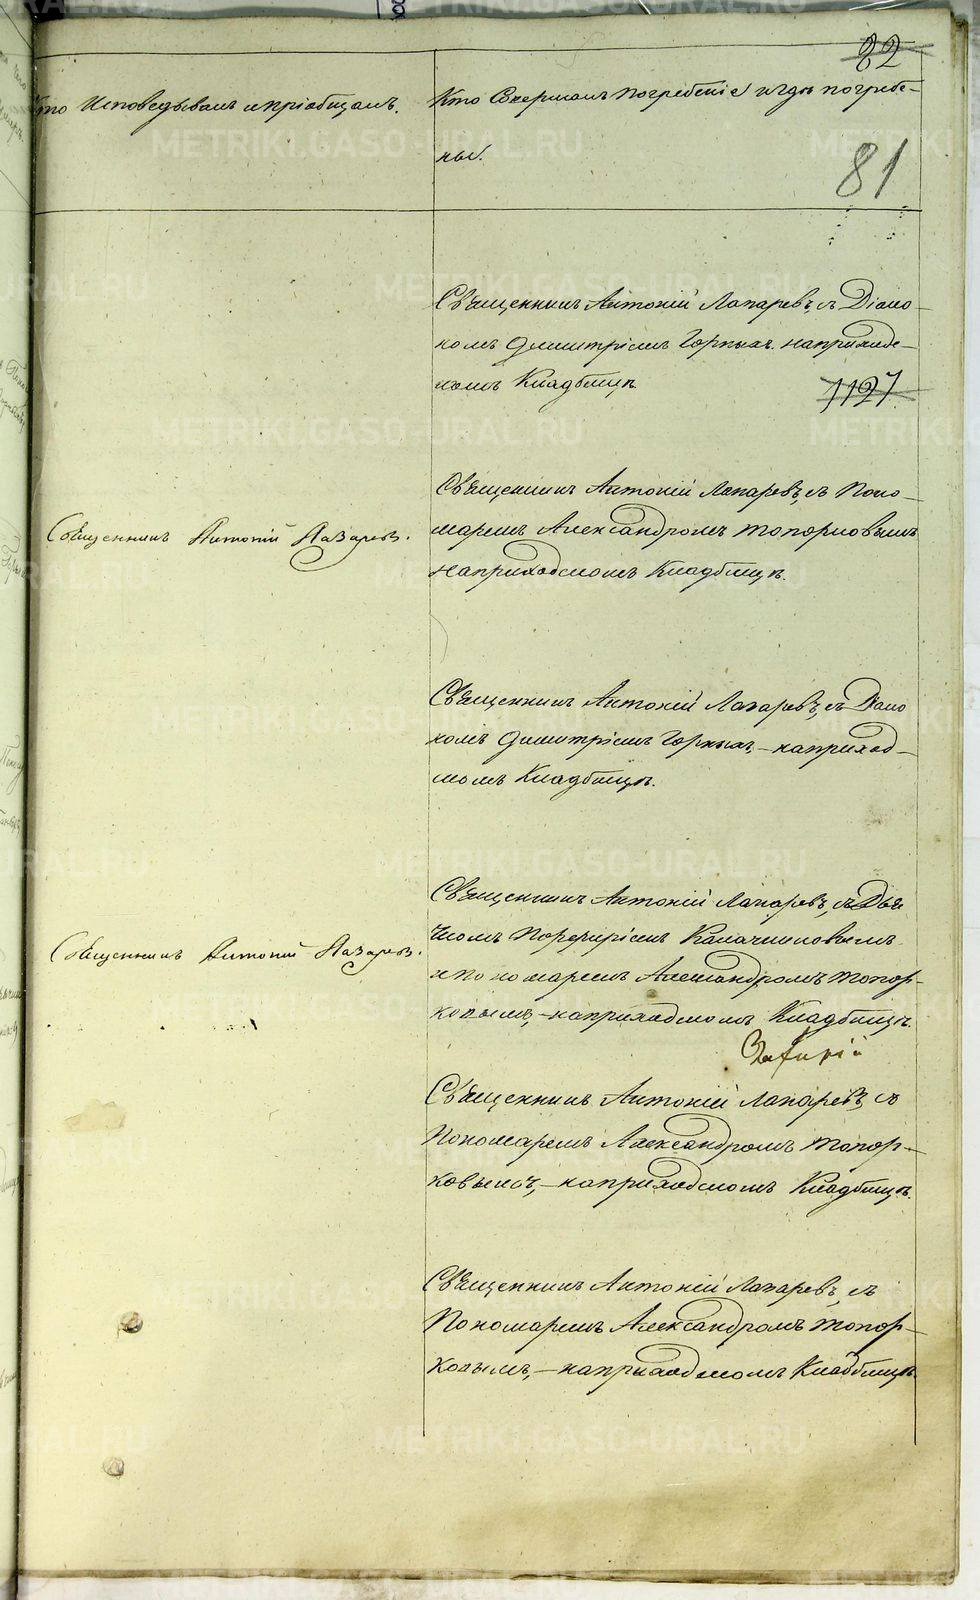 22
Кто Исповедывалъ и пріобщалъ.
Кто Совершалъ Погребеніе и гдѣ погребе-
ны.
81
Священникъ Антоній Лазаревъ, съ Діако-
номъ Димитріемъ Горныхъ. на приходс-
комъ Кладбищѣ.
1127
Священникъ Антоній Лазаревъ.
Священникъ Антоній Лазаревъ, съ Поно-
маремъ Александромъ Топорковымъ
на приходскомъ Кладбищѣ.
Священникъ Антоній Лазаревъ, съ Діако
номъ Димитріемъ Горныхъ, – на приход-
скомъ Кладбищѣ.
Священникъ Антоній Лазаревъ.
Священникъ Антоній Лазаревъ, съ Дья
чкомъ Порфиріемъ Калачниковымъ
и Пономаремъ Александромъ Топор-
ковымъ, – на приходскомъ Кладбищѣ.
Священникъ Антоній Лазаревъ, съ
Пономаремъ Александромъ Топор-
ковымъ, – на приходскомъ Кладбищѣ.
Священникъ Антоній Лазаревъ, съ
Пономаремъ Александромъ Топор-
ковымъ, – на приходскомъ Кладбищѣ.
METRIKI.GASO-URAL.RU